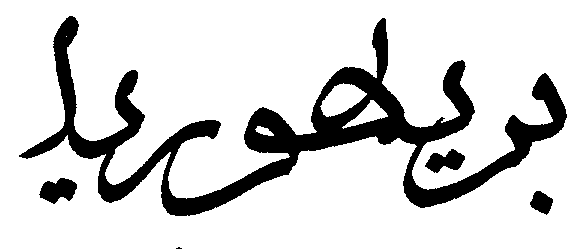 بريطوريا